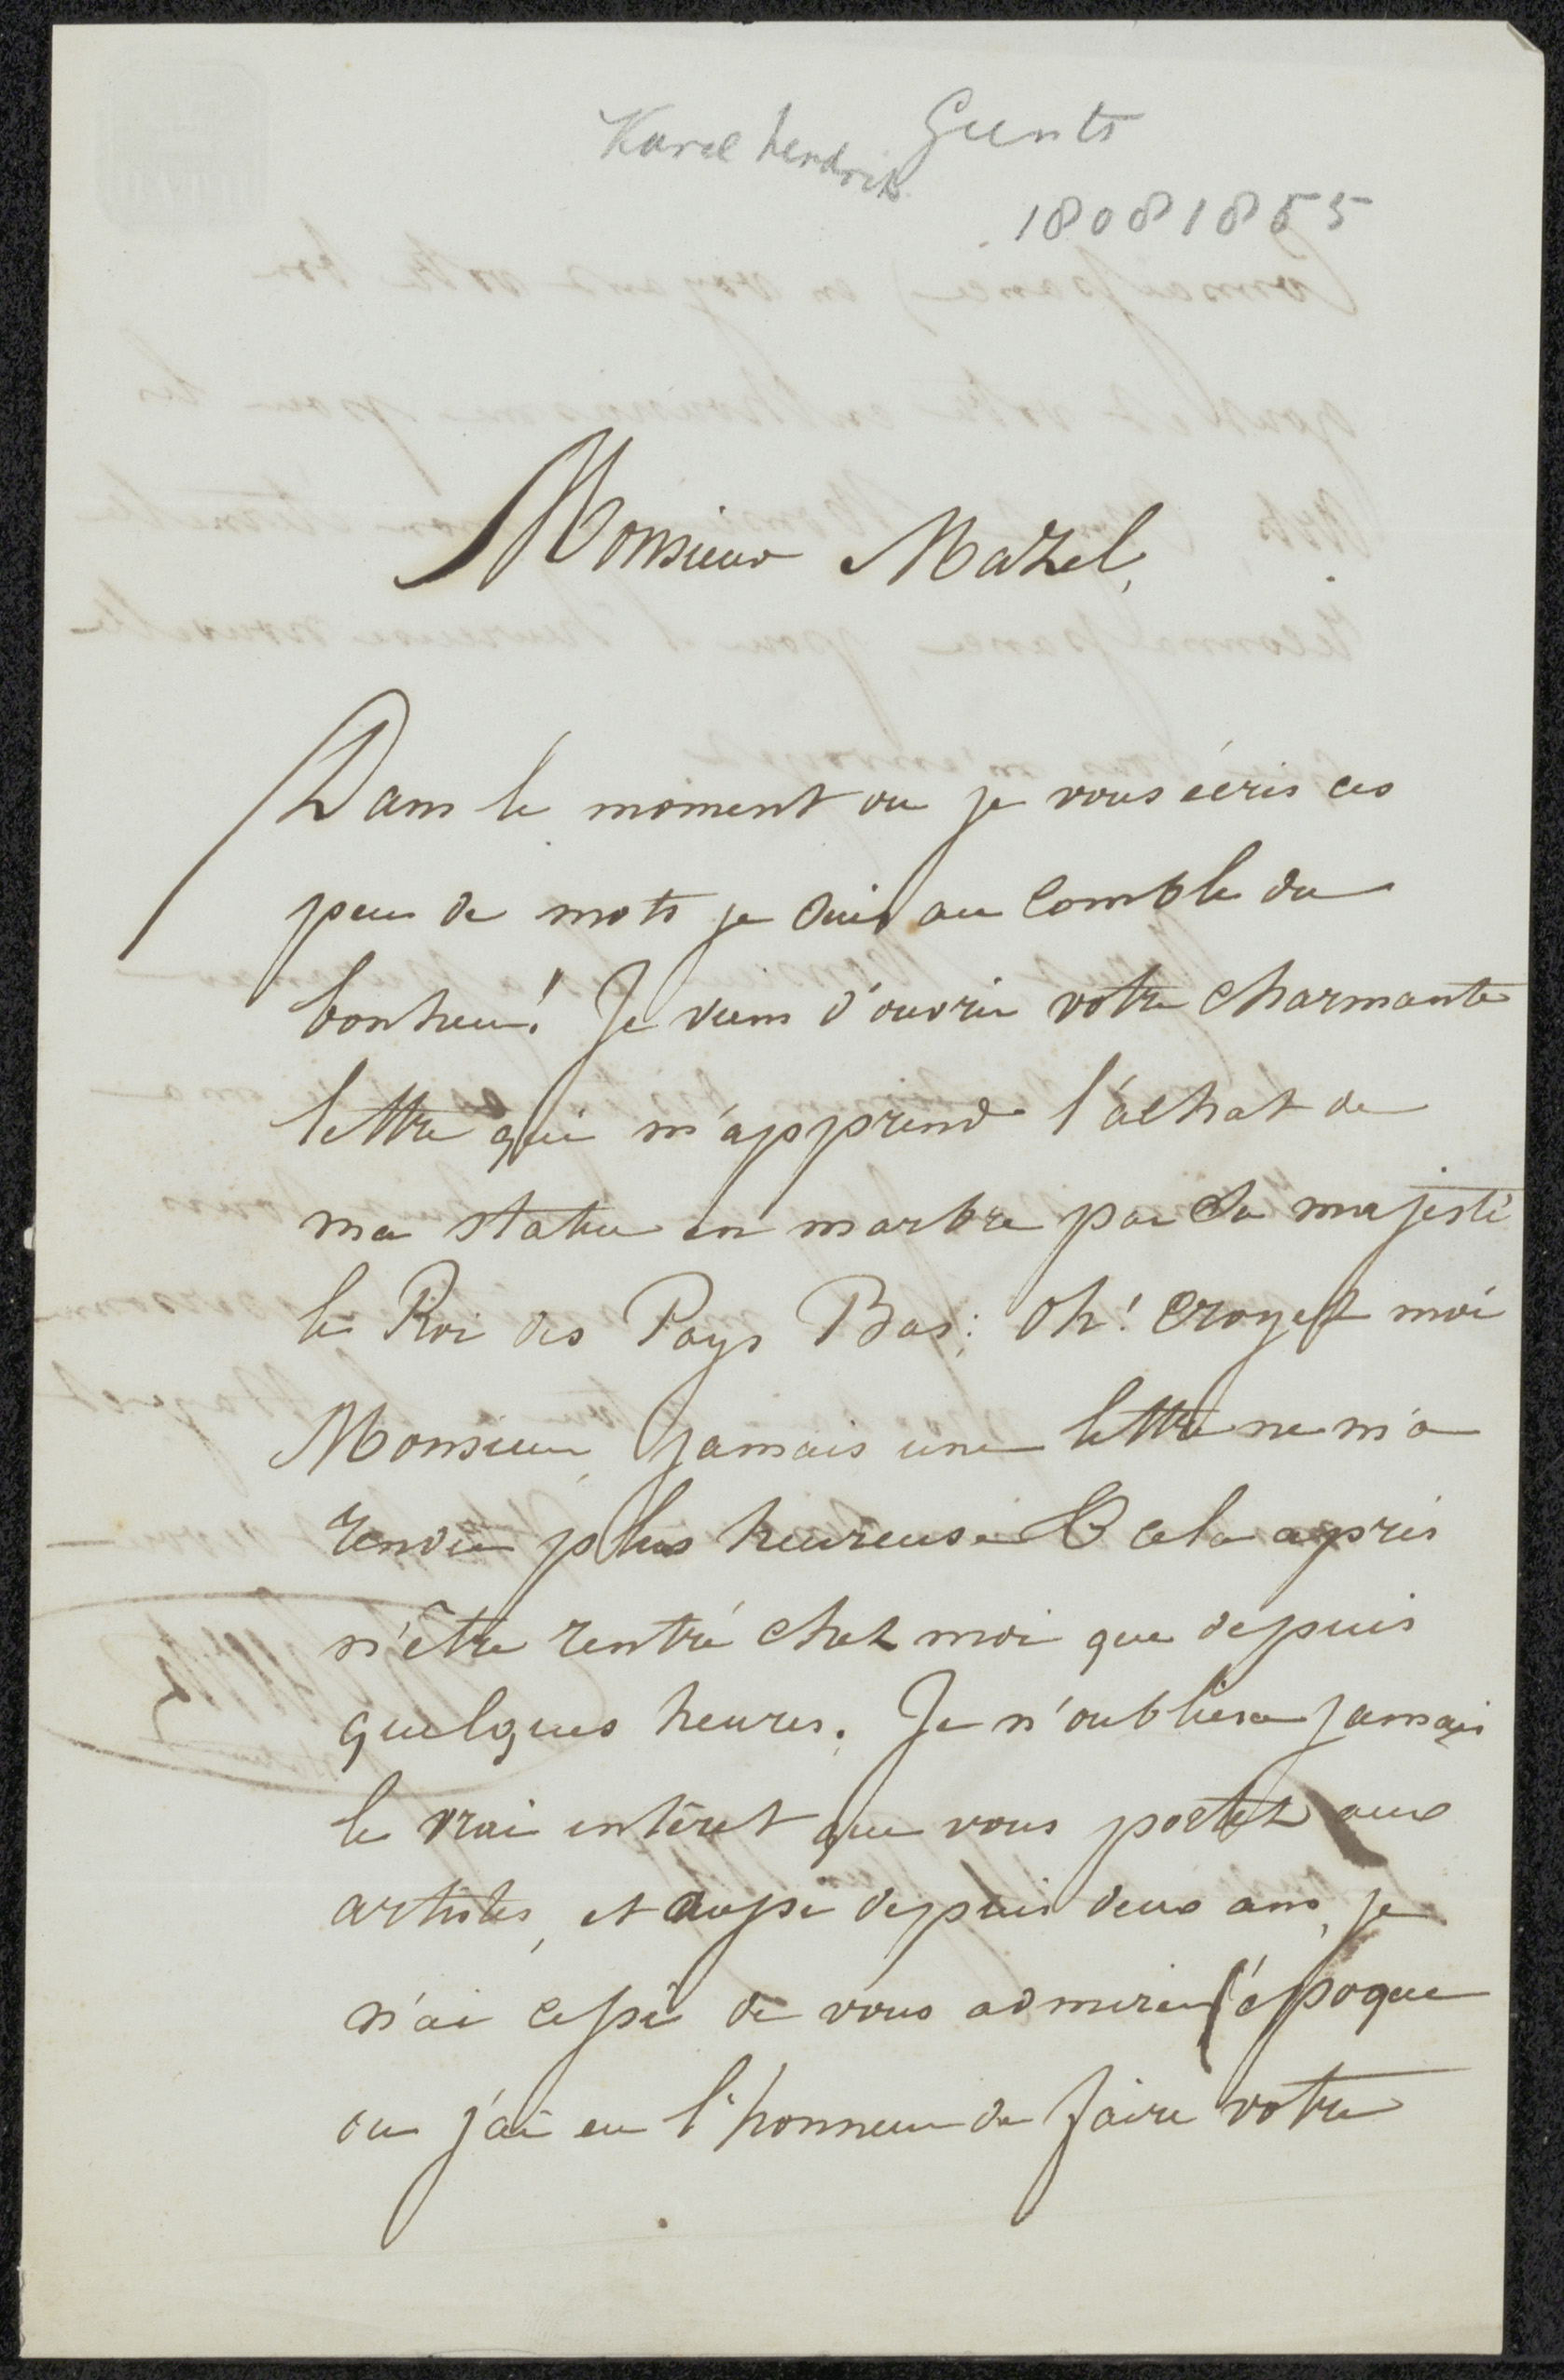 Karel hendrik Geerts
1808 1855
Monsieur Mazel,
Dans le moment ou je vous écris ces
peu de mots je suis au comble du
bonheur! Je viens d'ouvrir votre charmante
lettre qui m'apprend l'achat de
ma statue en marbre par Sa majesté
le Roi des Pays Bas; Oh! croyez moi
Monsieur, jamais une lettre ne m'a
rendu plus heureuse & cela après
n'être rentré chez moi que depuis
quelques heures. Je n'oubliera jamais
le vrai intéret que vous portez aux
artistes, et aussi depuis deux ans, je
n'ai cessé de vous admirer (époque
ou j'ai eu l'honneur de faire votre